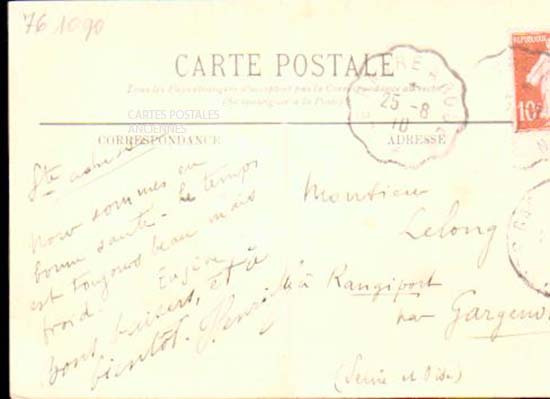 76 1090
CARTE POSTALE
Tous les Pays étrangers n'acceptent pas la Correspondance au recto
(Se renseigner à la Poste)
CARTES POSTALES
ANCIENNES
CORRESPONDANCE
ADRESSE
25 - 8
10
REPUBLIQUE
10c
Ste adresse
Nous sommes en
bonne santé - le temps
est toujours beau mais
froid. Eugène
bons baisers, et à
bientôt. Henri
Monsieur
Lelong
à Rangiport
par Gargen
(Seine et Oise)